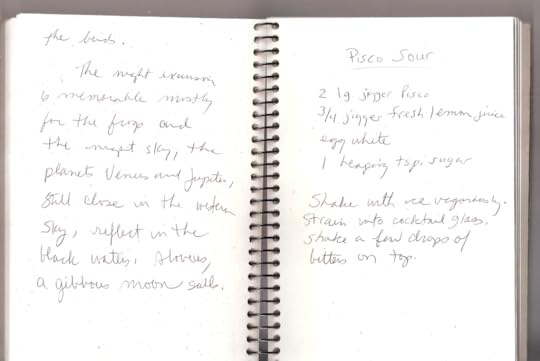 the birds.
The night excursion
is memorable mostly
for the frogs and
the night sky, the
planets Venus and Jupiter,
still close in the western
sky, reflect in the
black waters. Above,
a gibbous moon sails.
Pisco Sour
2 lg. jigger Pisco
3/4 jigger fresh lemon juice
egg white
1 heaping tsp. sugar
Shake with ice vigorously.
Strain into cocktail glass.
Shake a few drops of
bitters on top.